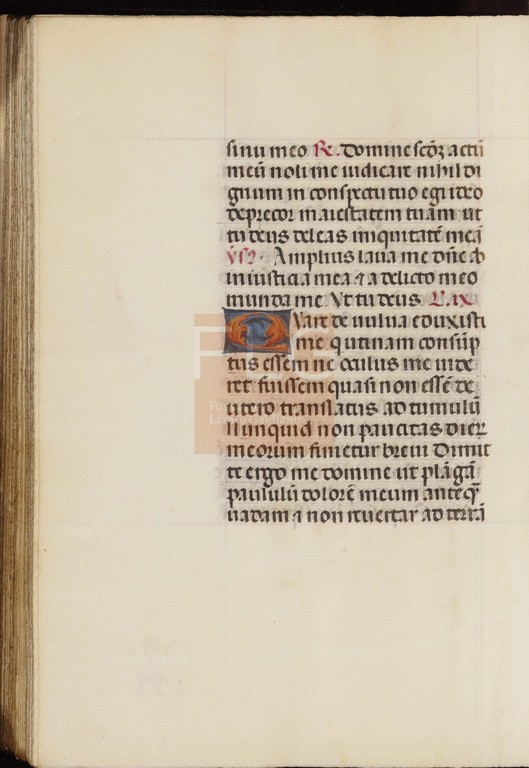 sinu meo R. Domine scdȝ actū
meū noli me iudicare nihil di
gnum in conspectu tuo egi ideo
deprecor maiestatem tuam ut
tu deus deleas iniquitatē meā
Amplius laua me dn̄e ab
iniusticia mea & a delicto meo
munda me. Vt tu deus. L. ix
Quare de uulua eduxisti
me qui utinam consūp
tus essem ne oculus me uide
ret fuissem quasi non essē de
utero translatus ad tumulū
Nunquid non paucitas dieꝝ
meorum finietur breui Dimit
te ergo me domine ut plāgā
paululū dolorē meum anteq̄
uadam & non reuertar ad terrā